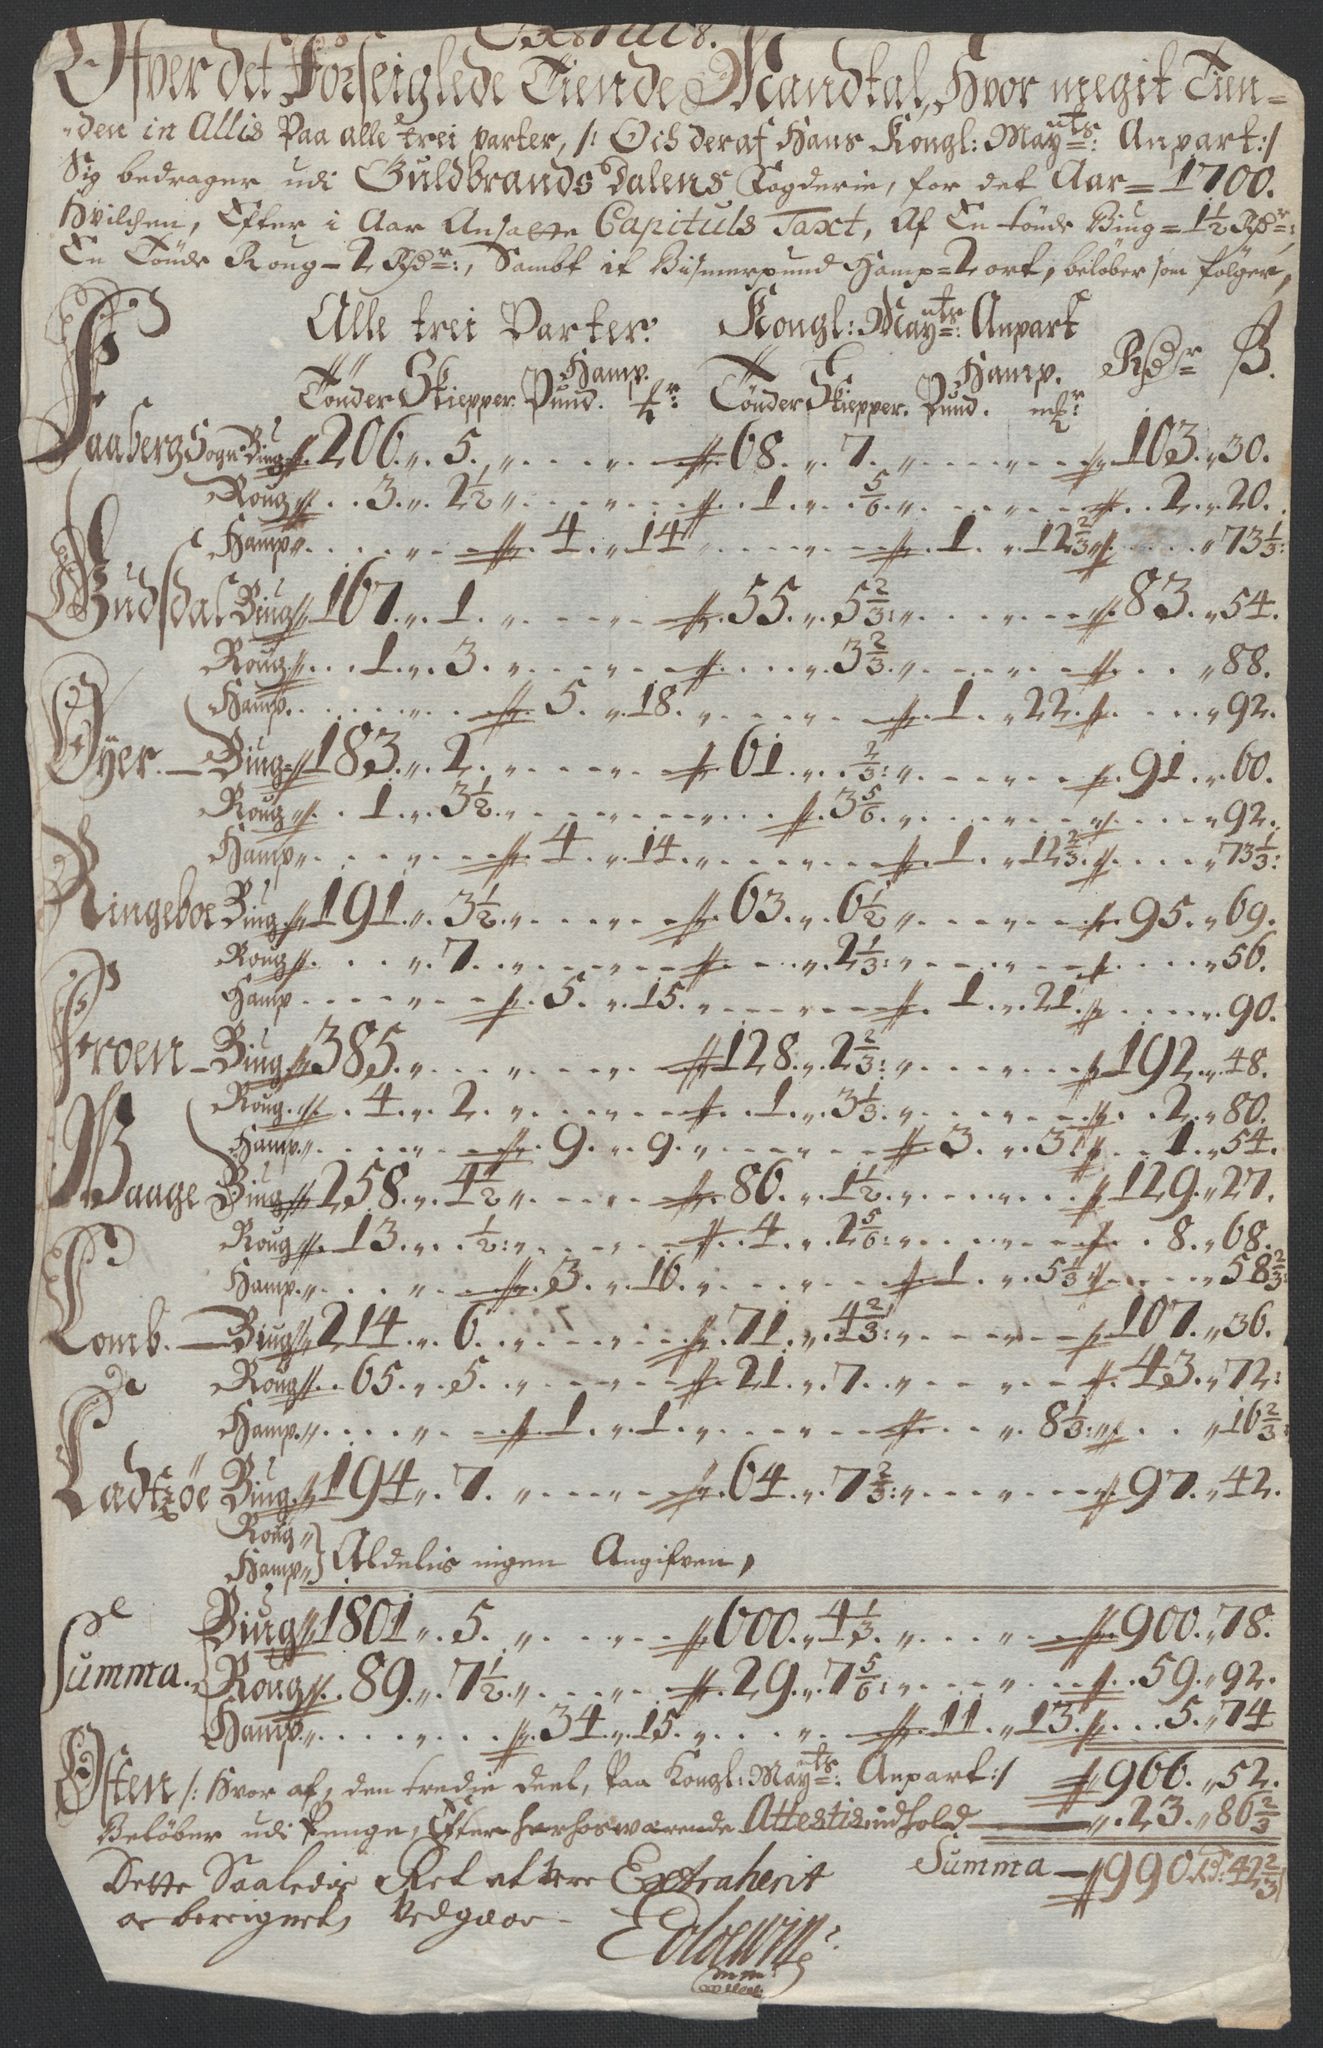 Extract.
Ofver det Forseiglede Tiende Mandtal, Hvor megit Tien=
den in Allis Paa alle trei parter, /: Och deraf Hans Kongl: Mayts: Anpart :/
Sig bedrager udi Guldbrands Dalens Fogderie, for det Aar = 1700.
Hvilchen, Efter i Aar Ansatte Capituls Taxt, Af En tönde Biug = 1½ Rdr:,
En Tönde Roug = 2 Rdr:, Sambt it Bismerpund Hamp = 2 ort, belöber som fölger,
Alle trei Parter. Kongl: Mayts: Anpart
Hamp. Hamp. Rdr ß.
Tönder Skiepper. Pund. mkr: Tönder Skiepper. Pund. mkr
Faaberg Sogn Biug 206. 5. 68. 7. 103. 30.
Roug 3. 2½ 1. 5/6 2. 20.
Hamp 4. 14 1. 12⅔ 73⅓:
Gudsdal Biug 167. 1. 55. 5⅔: 83. 54.
Roug 1. 3. 3⅔ 88.
Hamp. 5. 18. 1. 22. 92.
Öyer. Biug 183. 2. 61. ⅔: 91. 60.
Roug 1. 3½ 3 5/6 92.
Hamp 4. 14. 1. 12⅔ 73⅓:
Ringeboe Biug 191. 3½ 63. 6½ 95. 69.
Roug 7. 2⅓: 56.
Hamp 5. 15. 1. 21. 90.
Froen Biug 385. 128. 2⅔: 192. 48.
Roug 4. 2. 1. 3⅓ 2. 80.
Hamp. 9. 9. 3. 3. 1. 54.
Waage Biug 258. 4½ 86. 1½ 129. 27.
Roug 13. ½: 4. 2 5/6: 8. 68.
Hamp 3. 16. 1. 5⅓ 58⅔:
Lomb. Biug 214. 6. 71. 4⅔: 107. 36.
Roug 65. 5. 21. 7. 43. 72:
Hamp. 1. 1. 8⅓: 16⅔:
Ladtzöe Biug 194. 7. 64. 7⅔: 97. 42.
Roug
Hamp } Aldelis ingen Angifven,
Biug 1801. 5. 600. 4⅓ 900. 78.
Summa. Roug 89. 7½ 29. 7 5/6: 59. 92.
Hamp 34. 15. 11. 13. 5. 74
Osten /: Hvor af, den tredie deel, Paa Kongl: Mayts: Anpart :/ 966. 52.
Belöber udi Penge, Efter herhosværende Attestis indhold 23. 86⅔
Dette Saaledis Ret at være Extraherit Summa 990 Rd: 42⅔
oc beregnet, Vedgaar